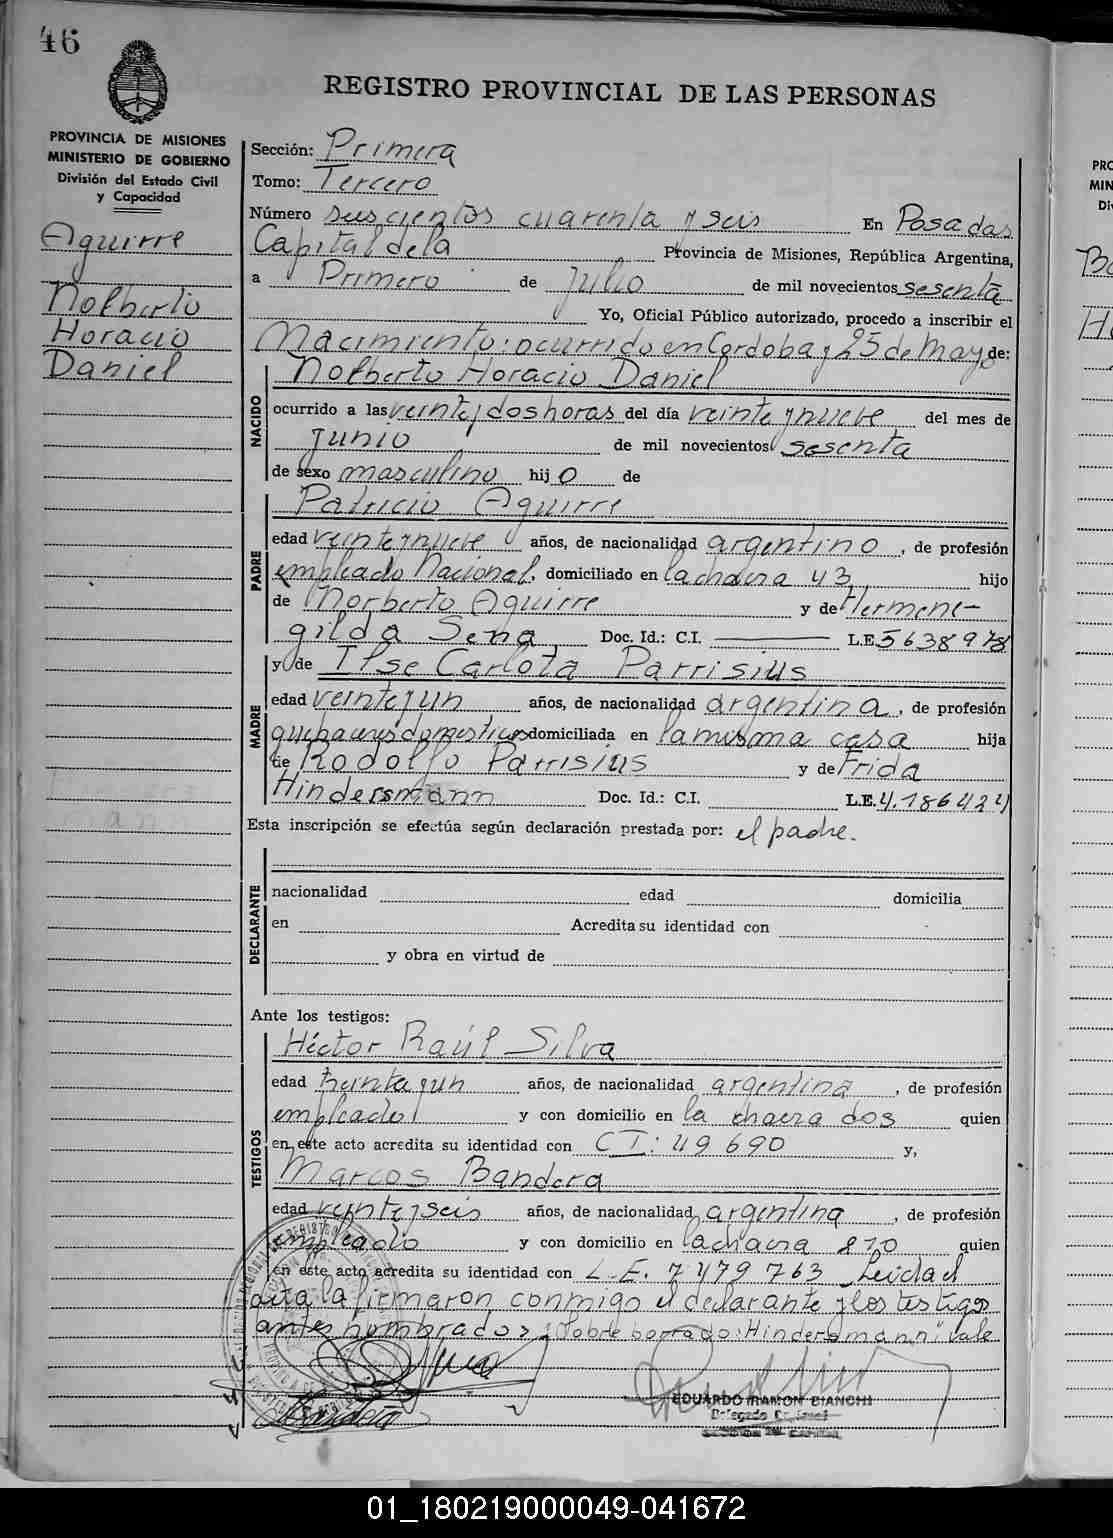 46
REGISTRO PROVINCIAL DE LAS PERSONAS
PROVINCIA DE MISIONES
MINISTERIO DE GOBIERNO
División del Estado Civil
y Capacidad
Aguirre
Nolberto
Horacio
Daniel
Sección: Primera
Tomo: Tercero
Número Duscientos cuarenta y seis En Posadas
Capital de la Provincia de Misiones, República Argentina,
a Primero de Julio de mil novecientos sesenta
Yo, Oficial Público autorizado, procedo a inscribir el
Nacimiento: ocurrido en Cordoba y 25 de Mayo de:
NACIDO
Nolberto Horacio Daniel
ocurrido a las veinte y dos horas del día veinte y nueve del mes de
Junio de mil novecientos sesenta
de sexo masculino hij o de
PADRE
Patricio Aguirre
edad veinte y nueve años, de nacionalidad argentino, de profesión
empleado Nacional, domiciliado en la chacra 43 hijo
de Norberto Aguirre y de Hermene-
gilda Sena Doc. Id.: C.I. L.E. 5638978
MADRE
y de Ilse Carlota Parrisius
edad veinte y un años, de nacionalidad argentina, de profesión
quehaceres domesticos domiciliada en la misma casa hija
de Rodolfo Parrisius y de Frida
Hindersmann Doc. Id.: C.I. L.E. 4.186424
Esta inscripción se efectúa según declaración prestada por: el padre.
DECLARANTE
nacionalidad edad domicilia
en Acredita su identidad con
y obra en virtud de
Ante los testigos:
TESTIGOS
Héctor Raúl Silva
edad treinta y un años, de nacionalidad argentina, de profesión
empleado y con domicilio en la chacra dos quien
en este acto acredita su identidad con C I: 49 690 y,
Marcos Bandera
edad veinte y seis años, de nacionalidad argentina, de profesión
empleado y con domicilio en la chacra 810 quien
en este acto acredita su identidad con L.E. 7479763 Leida el
acta la firmaron conmigo el declarante y los testigos
antes nombrados; sobre borrado: Hindersmann" vale
EDUARDO RAMON BIANCHI
01_180219000049-041672